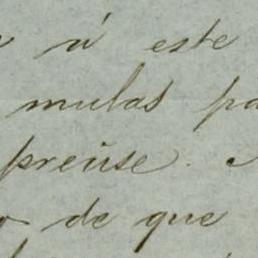 á este
mulas pa
prense.
o de que